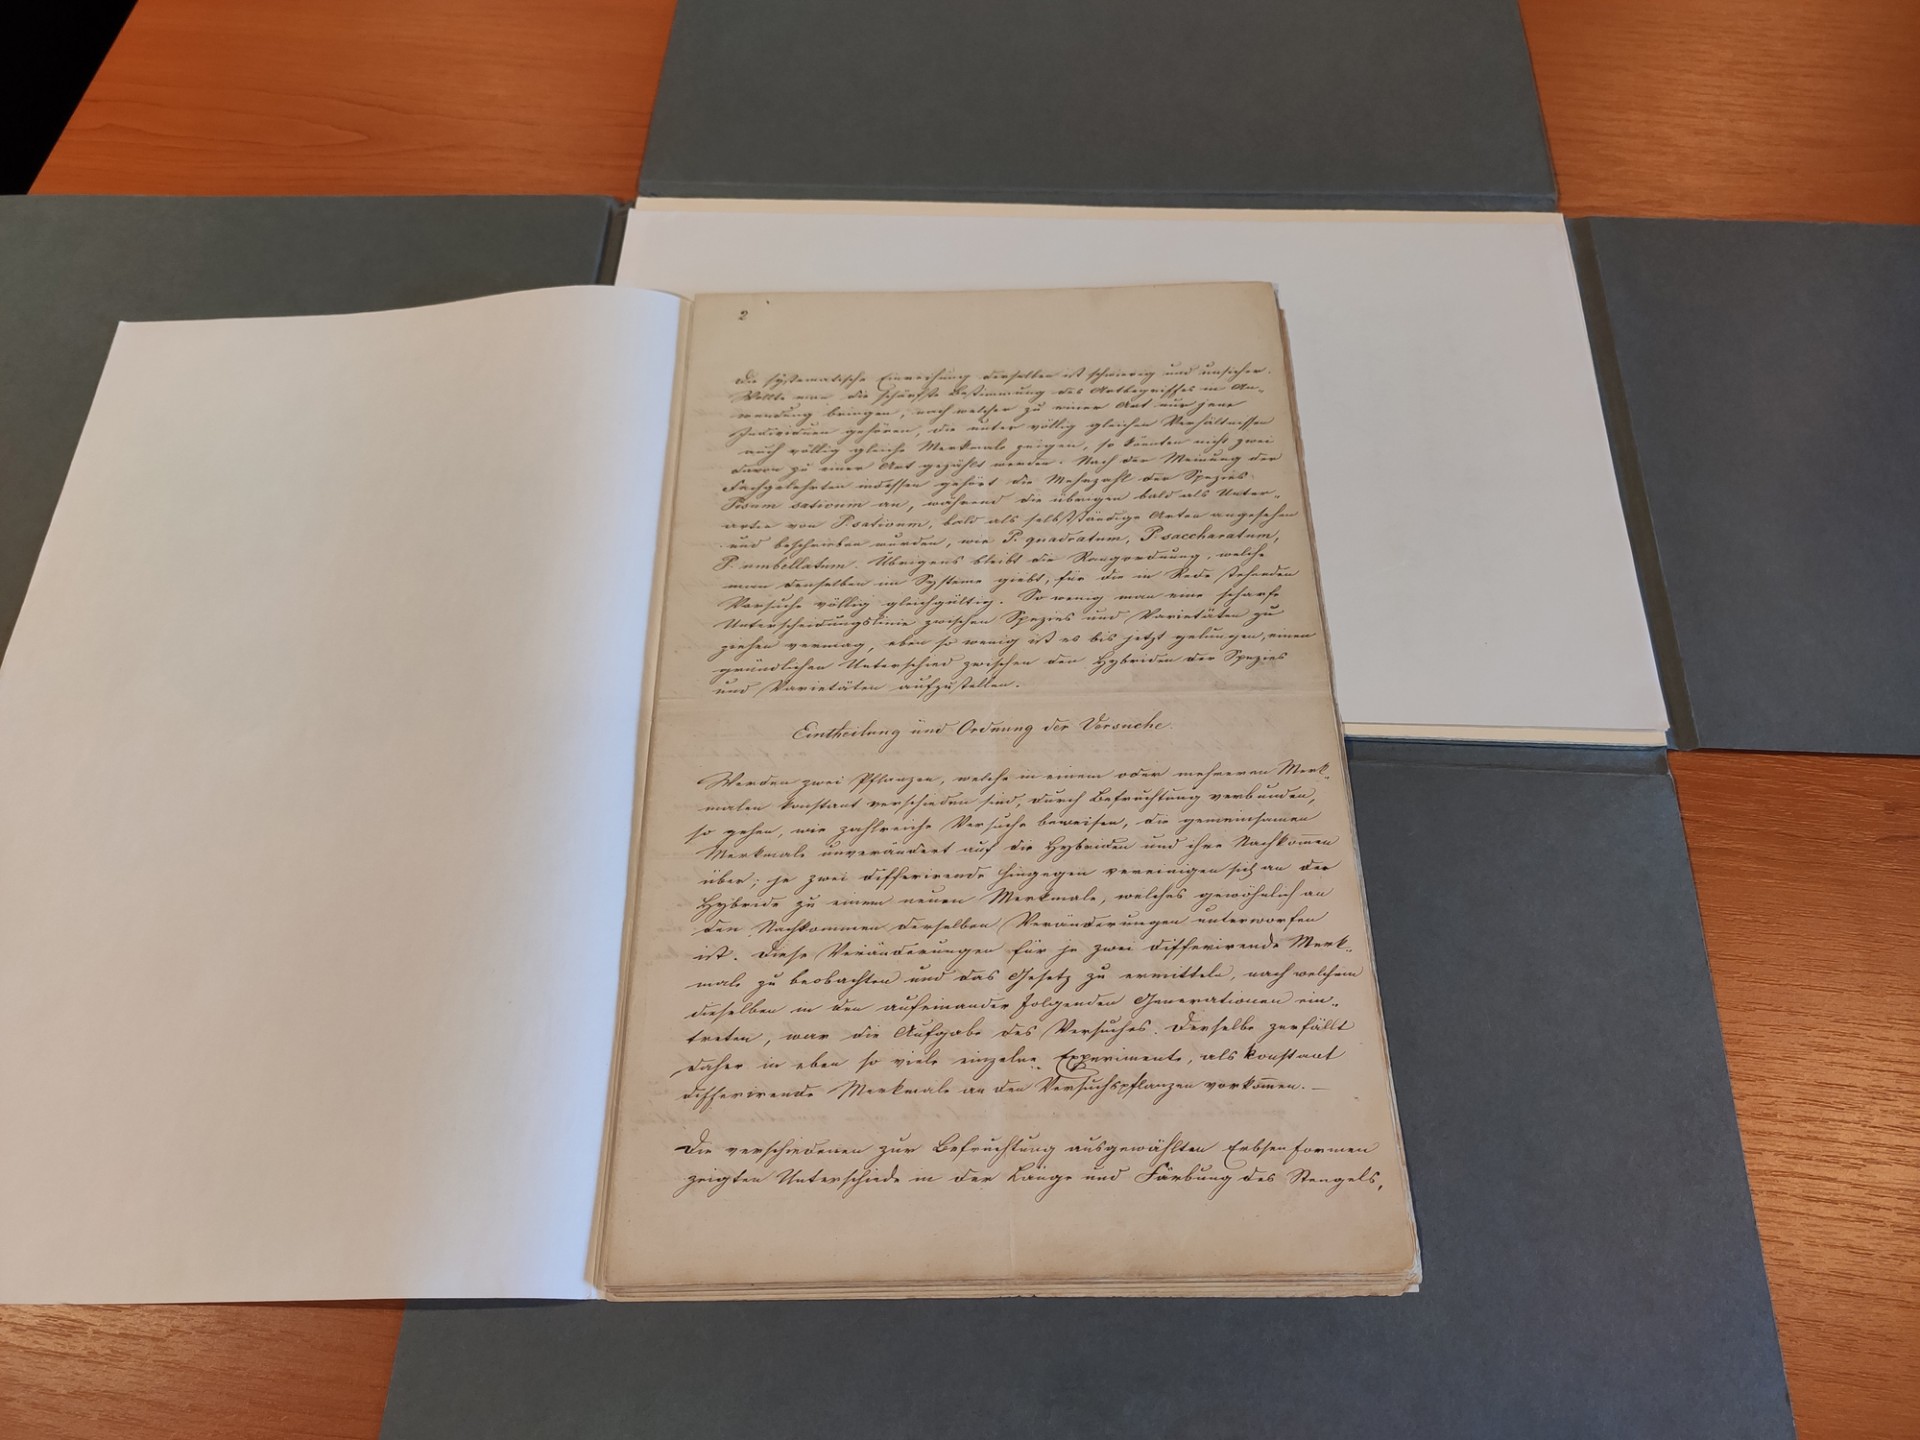 2
Die systematische Einreihung derselben ist schwierig und unsicher.
Wollte man die schärfste Bestimmung des Artbegriffes in An-
wendung bringen, nach welcher zu einer Art nur jene
Individuen gehören, die unter völlig gleichen Verhältnissen
auch völlig gleiche Merkmale zeigen, so könnten nicht zwei
davon zu einer Art gezählt werden. Nach der Meinung der
Fachgelehrten indessen gehört die Mehrzahl der Spezies
Pisum sativum an, während die übrigen bald als Unter-
arten von P. sativum, bald als selbstständige Arten angesehen
und beschrieben wurden, wie P. quadratum, P. saccharatum,
P. umbellatum. Übrigens bleibt die Rangordnung, welche
man denselben im Systeme giebt, für die in Rede stehenden
Versuche völlig gleichgültig. So wenig man eine scharfe
Unterscheidungslinie zwischen Spezies und Varietäten zu
ziehen vermag, eben so wenig ist es bis jetzt gelungen, einen
gründlichen Unterschied zwischen den Hybriden der Spezies
und Varietäten aufzustellen.
Eintheilung und Ordnung der Versuche.
Werden zwei Pflanzen, welche in einem oder mehreren Merk-
malen konstant verschieden sind, durch Befruchtung verbunden,
so gehen, wie zahlreiche Versuche beweisen, die gemeinsamen
Merkmale unverändert auf die Hybriden und ihre Nachkom̅en
über; je zwei differirende hingegen vereinigen sich an der
Hybride zu einem neuen Merkmale, welches gewöhnlich an
den Nachkommen derselben Veränderungen unterworfen
ist. Diese Veränderungen für je zwei differirende Merk-
male zu beobachten und das Gesetz zu ermitteln, nach welchem
dieselben in den aufeinander folgenden Generationen ein-
treten, war die Aufgabe des Versuches. Derselbe zerfällt
daher in eben so viele einzelne Experimente, als konstant
differirende Merkmale an den Versuchspflanzen vorkom̅en. —
Die verschiedenen zur Befruchtung ausgewählten Erbsenformen
zeigten Unterschiede in der Länge und Färbung des Stengels,